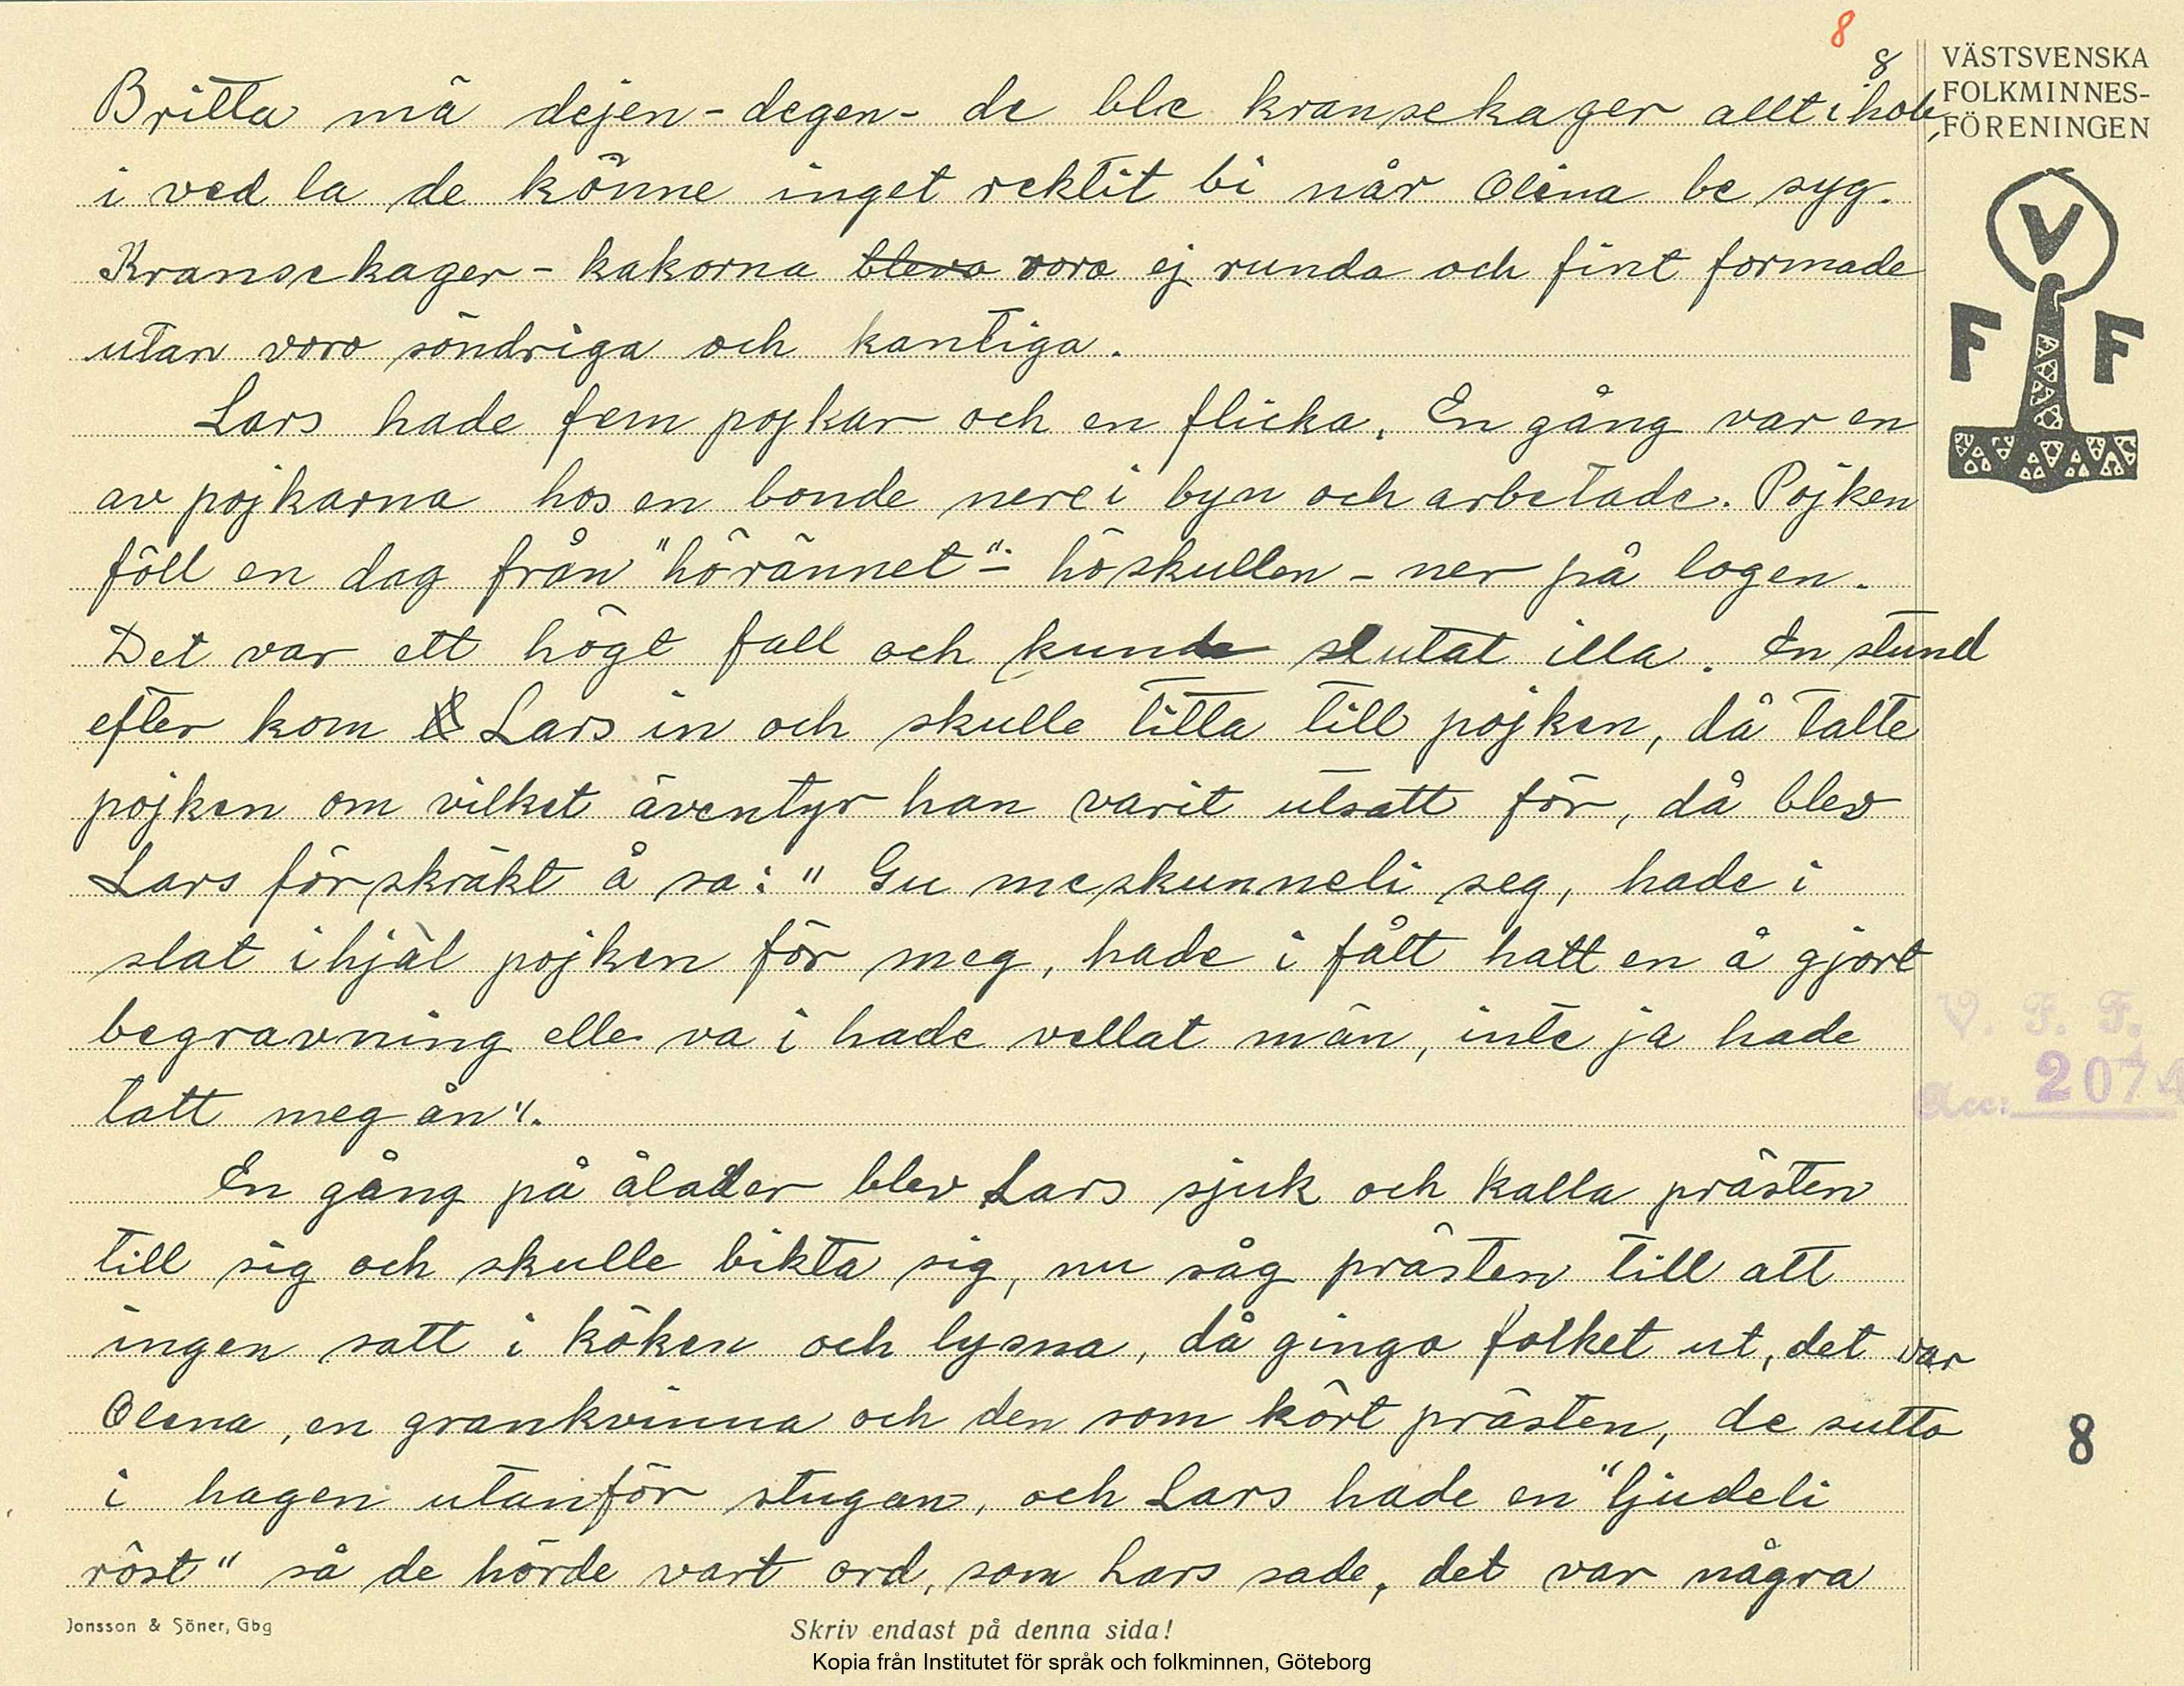 8
8
VÄSTSVENSKA
FOLKMINNES-
FÖRENINGEN
V
F F
Britta mä dejen - degen - de ble kransekager allt i hob,
i ved la de könne inget rektit bi når Olina be syg.
Kransekager - kakorna blevo voro ej runda och fint formade
utan voro söndriga och kantiga.
Lars hade fem pojkar och en flicka. En gång var en
av pojkarna hos en bonde nere i byn och arbetade. Pojken
föll en dag från "hörännet" - höskullen - ner på logen.
Det var ett högt fall och kunde slutat illa. En stund
efter kom Lars in och skulle titta till pojken, då talte
pojken om vilket äventyr han varit utsatt för, då blev
Lars förskräkt å sa: "Gu meskunneli seg, hade i
slat ihjäl pojken för meg, hade i fått hatt en å gjort
begravning elle va i hade vellat män, inte ja hade
tatt meg ån".
En gång på ålader blev Lars sjuk och kalla prästen
till sig och skulle bikta sig, nu såg prästen till att
ingen satt i köken och lysna, då gingo folket ut, det var
Olena, en grankvinna och den som kört prästen, de sutto
i hagen utanför stugan, och Lars hade en "ljudeli
röst" så de hörde vart ord, som Lars sade, det var några
V. F. F.
Acc: 2074
8
Jonsson & Söner, Gbg
Skriv endast på denna sida!
Kopia från Institutet för språk och folkminnen, Göteborg